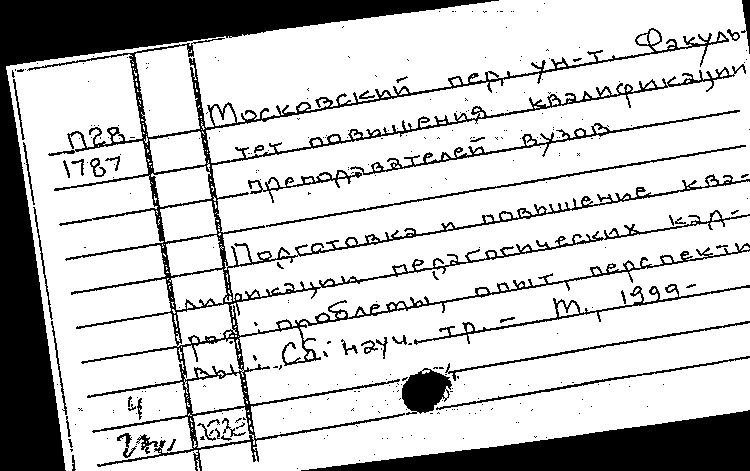 Московский пед. ун-т. Факуль-
П28
тет повышения квалификации
1787
преподавателей вузов
Подготовка и повышение ква-
лификации педагогических кад-
ров: проблемы, опыт, перспекти
вы: Сб. науч. тр. - М., 1999-
4